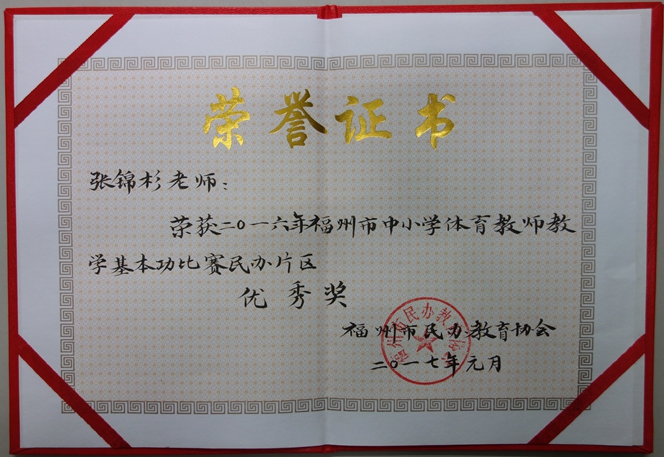 荣誉证书
张锦杉老师：
荣获二〇一六年福州市中小学体育教师教
学基本功比赛民办片区
优秀奖
福州市民办教育协会
二〇一七年元月
福州市民办教育协会